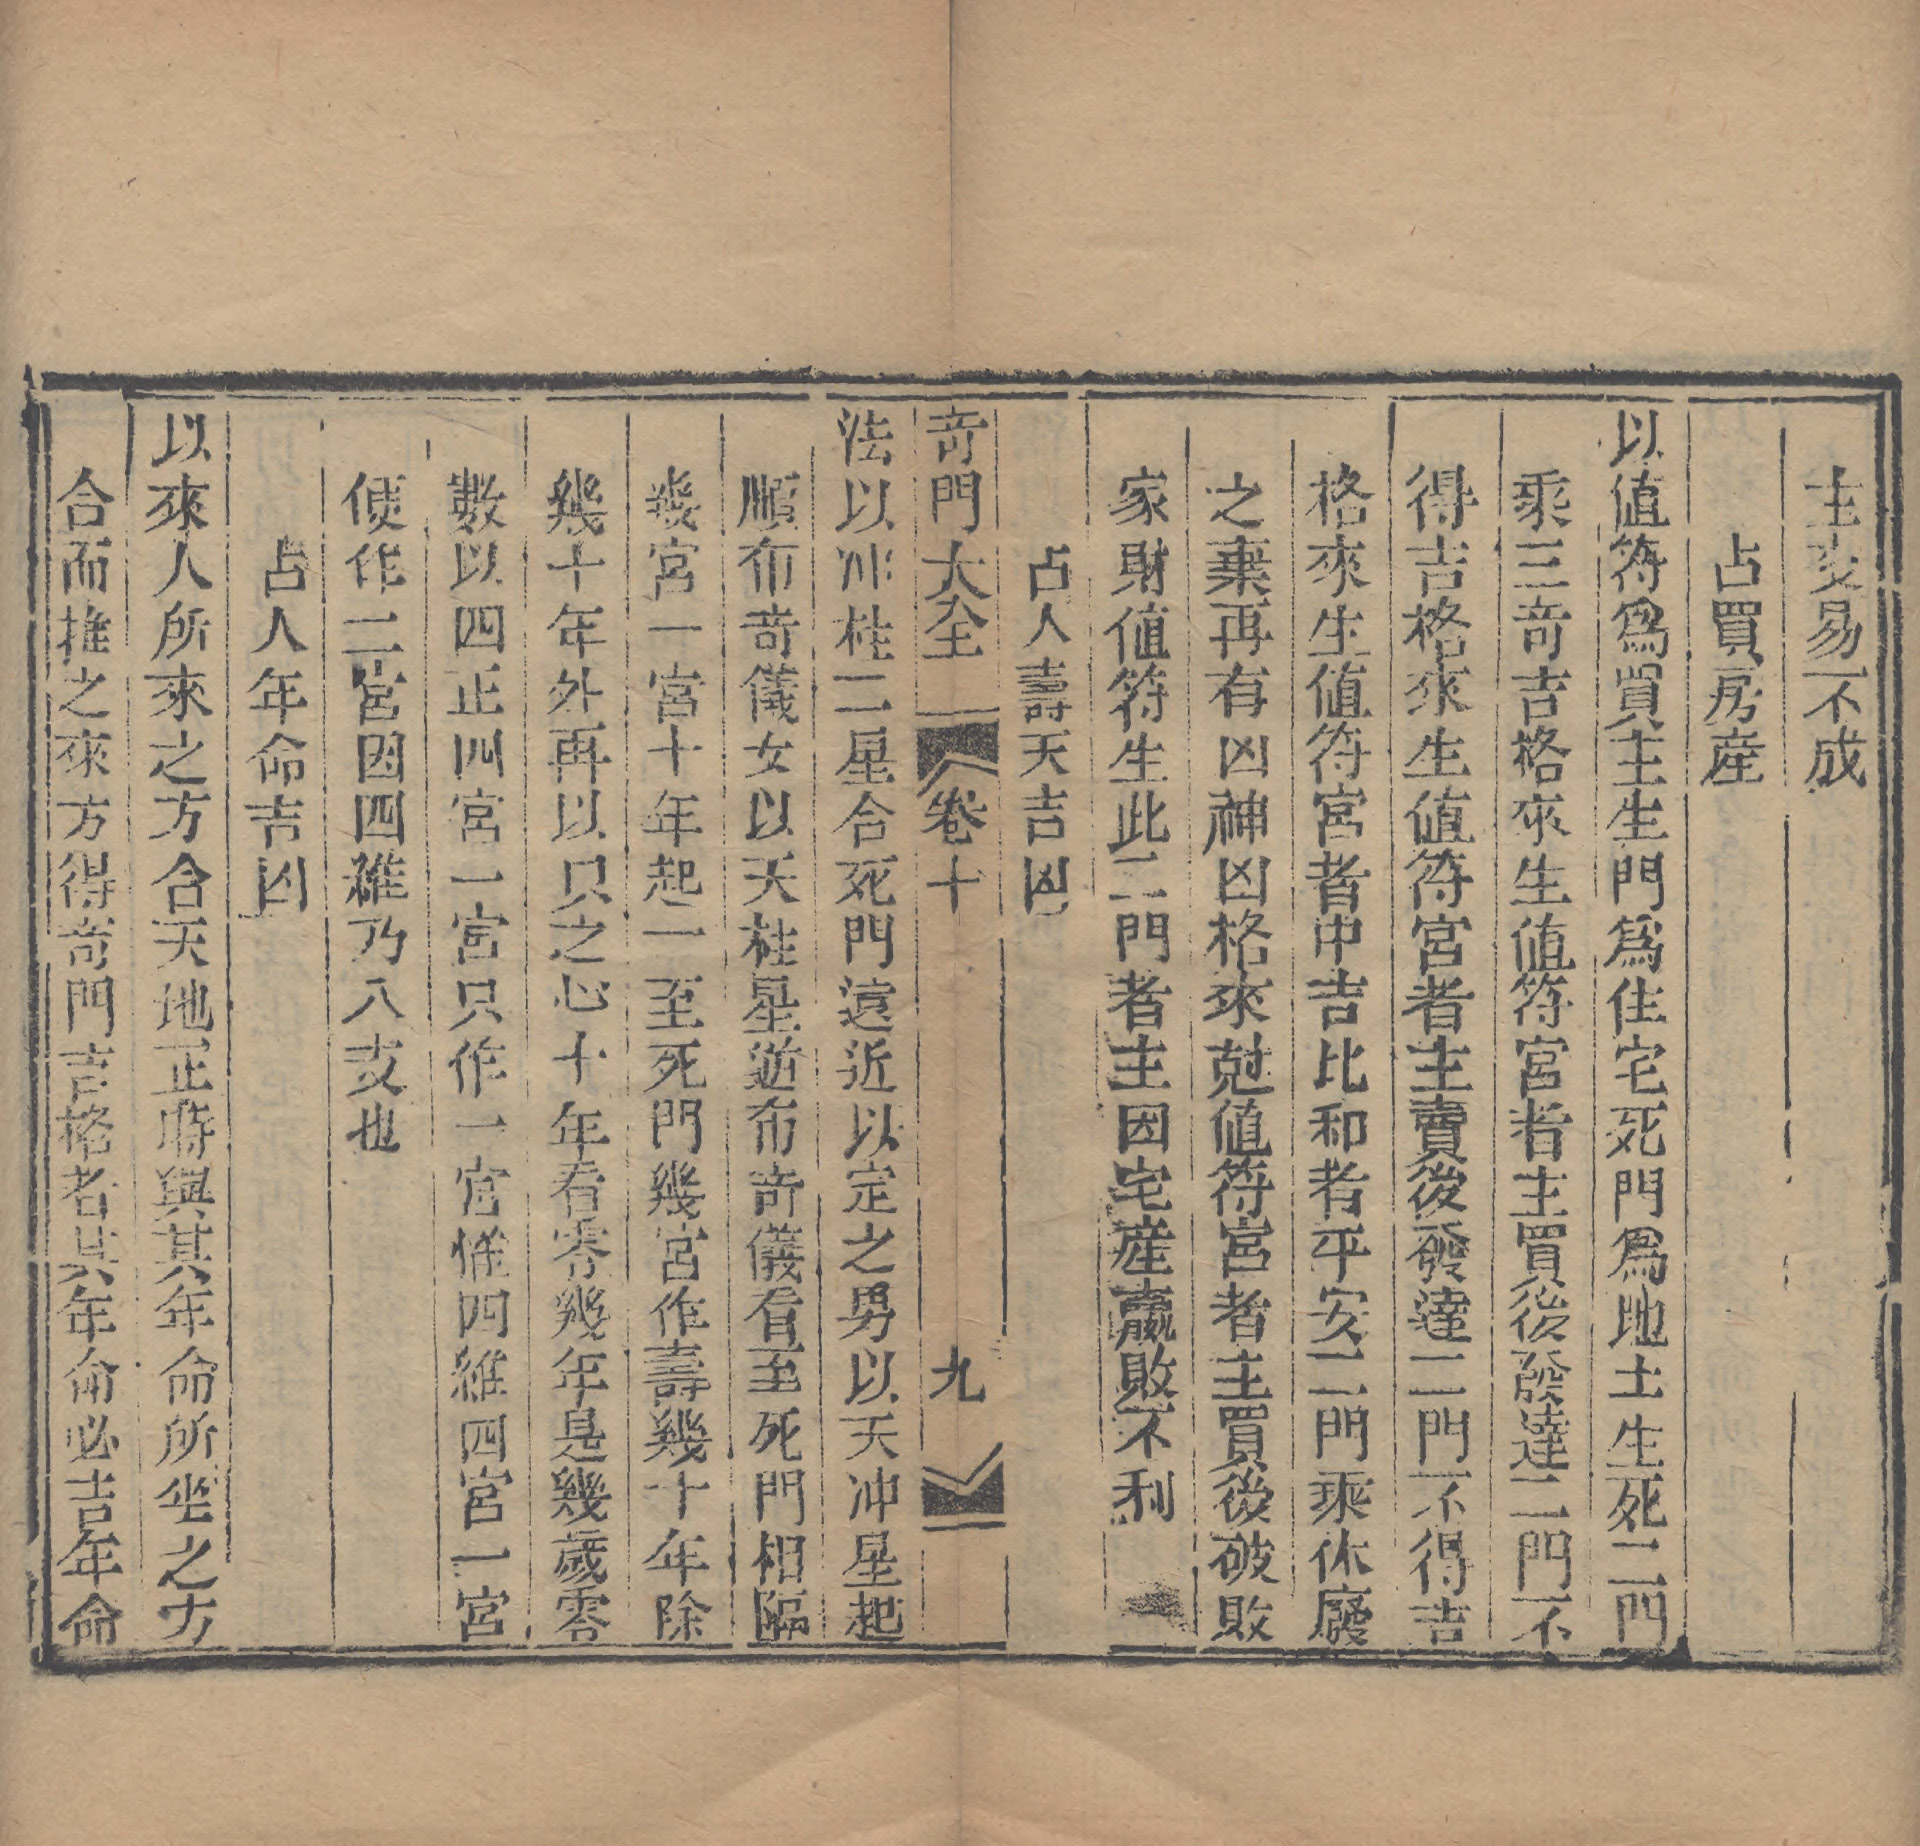 主交易不成
占買房産
以値符爲買主生門爲住宅死門爲地土生死二門
乘三竒吉格來生値符宮者主買後發達二門不
得吉格來生値符宮者主賣後發達二門不得吉
格來生値符宮者中吉比和者平安二門乘休廢
之棄再有凶神凶格來尅値符宮者主買後破敗
家財値符生此二門者主因宅産嬴敗不利
占人壽夭吉凶
竒門大全
卷十
九
法以冲柱二星合死門遠近以定之男以天冲星起
順布竒儀女以天柱星逆布竒儀看至死門相臨
幾宮一宮十年起一至死門幾宮作壽幾十年除
幾十年外再以只之心十年看零幾年是幾歲零
數以四正四宮一宮只作一宮惟四維四宮一宮
便作二宮因四維乃八支也
占人年命吉凶
以來人所來之方合天地正時與其年命所坐之方
合而推之來方得竒門吉格者其年命必吉年命